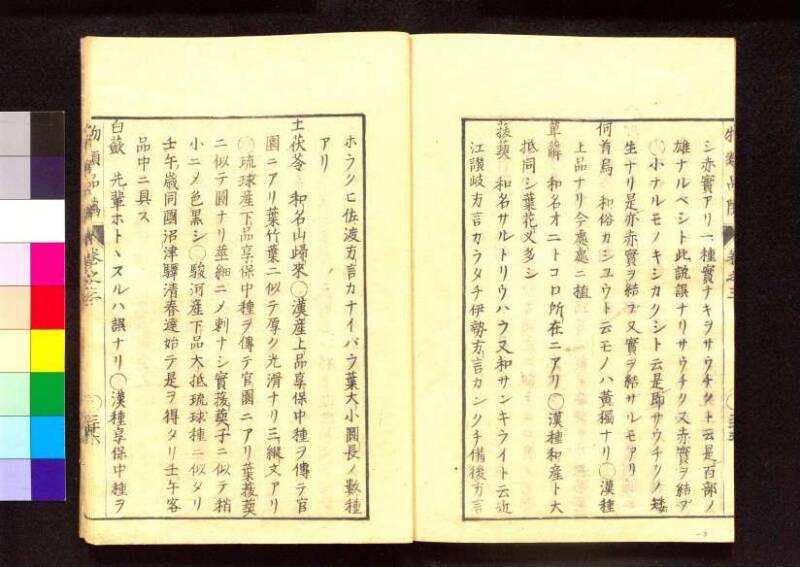 シ赤實アリ一種實ナキヲサウチクト云是百部ノ
雄ナルベシト此説誤ナリサウチクノ又赤實ヲ結ブ
○小ナルモノキジカクシト云是即サウチクノ矮
生ナリ是亦赤實ヲ結ブ又實ヲ結サルモアリ
何首烏 和俗カシユウト云モノハ黄獨ナリ○漢種
上品ナリ今處處ニ植
萆薢 和名オニトコロ所在ニアリ○漢種和産ト大
抵同シ葉花叉多シ
菝葜 和名サルトリウハウ又和サンキライト云近
江讃岐方言カラタチ伊勢方言カンクチ備後方言
ホラクヒ佐渡方言カナイバラ葉大小圓長ノ數種
アリ
土茯苓 和名山歸來○漢産上品享保中種ヲ傳テ官
園ニアリ葉竹葉ニ似テ厚ク光滑ナリ三縱文アリ
○琉球産下品享保中種ヲ傳テ官園ニアリ葉菝葜
ニ似テ圓ナリ莖細ニメ刺ナシ實菝葜子ニ似テ稍
小ニメ色黒シ○駿河産下品大抵琉球種ニ似タリ
壬午歳同國沼津驛清春達始テ是ヲ得タリ壬午客
品中ニ具ス
白蘞 先輩ホトヽスルハ誤ナリ○漢種享保中種ヲ
物類品隲 巻之三 ○三十六